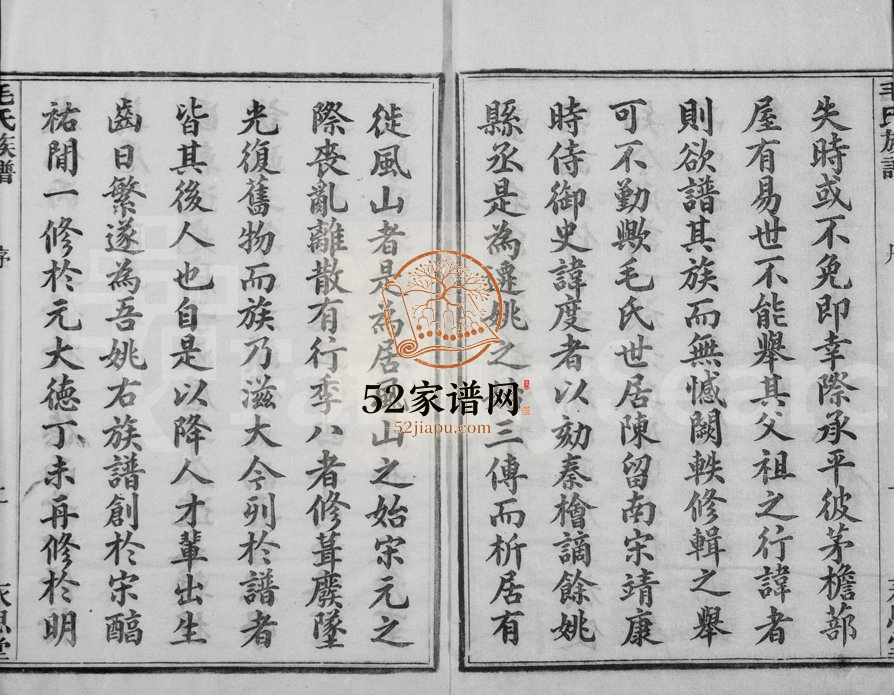 失時或不免即幸際承平彼茅檐蔀
屋有易世不能舉其父祖之行諱者
則欲譜其族而無憾闕軼修輯之舉
可不勤歟毛氏世居陳留南宋靖康
時侍御史諱度者以劾秦檜謫餘姚
縣丞是為遷姚之三傳而析居有
徙風山者是為居山之始宋元之
際喪亂離散有行季八者修葺廢墜
光復舊物而族乃滋大今列於譜者
皆其後人也自是以降人才輩出生
齒日繁遂為吾姚右族譜創於宋酯
祐閒一修於元大德丁未再修於明
毛氏族譜
序
毛氏族譜
52家谱网
52jiapu.com